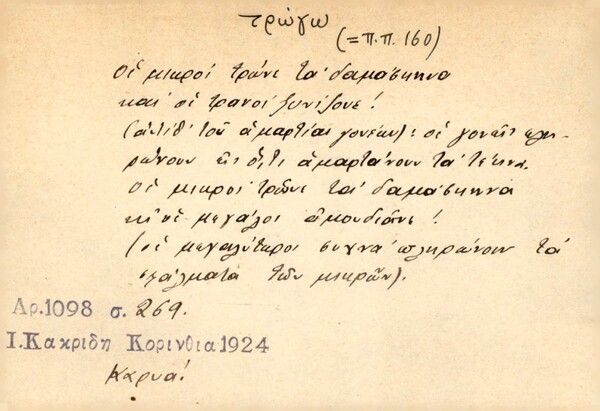 τρώγω
(=π.π. 160)
Οἱ μικροί τρῶνε τά δαμάσκηνα
καί οἱ τρανοί ξυνίζουνε!
(ἀντίθ. τοῦ ἁμαρτίαι γονέων): οἱ γονεῖς πλη-
ρώνουν εἰς ὅ,τι ἁμαρτάνουν τά τέκνα.
Οἱ μικροί τρῶνε τά δαμάσκηνα
κι' οἱ μεγάλοι αἱμουδιᾶνε!
(οἱ μεγαλύτεροι συχνά πληρώνουν τά
σφάλματα τῶν μικρῶν).
Αρ.1098 σ. 269.
Ι.Κακριδη Κορινθια 1924
Καρυά!